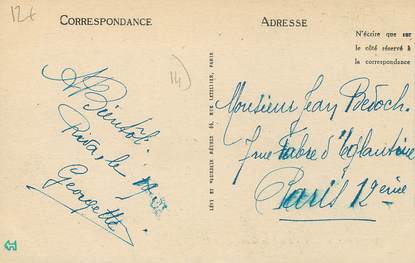 12€
CORRESPONDANCE
ADRESSE
N'écrire que sur
le côté réservé à
la correspondance
14)
A Bientôt.
le 19
Georgette
LÉVY ET NEURDEIN RÉUNIS, 44, RUE LETELLIER, PARIS
Monsieur Jean
7 rue Fabre d'Eglantine
Paris 12ème